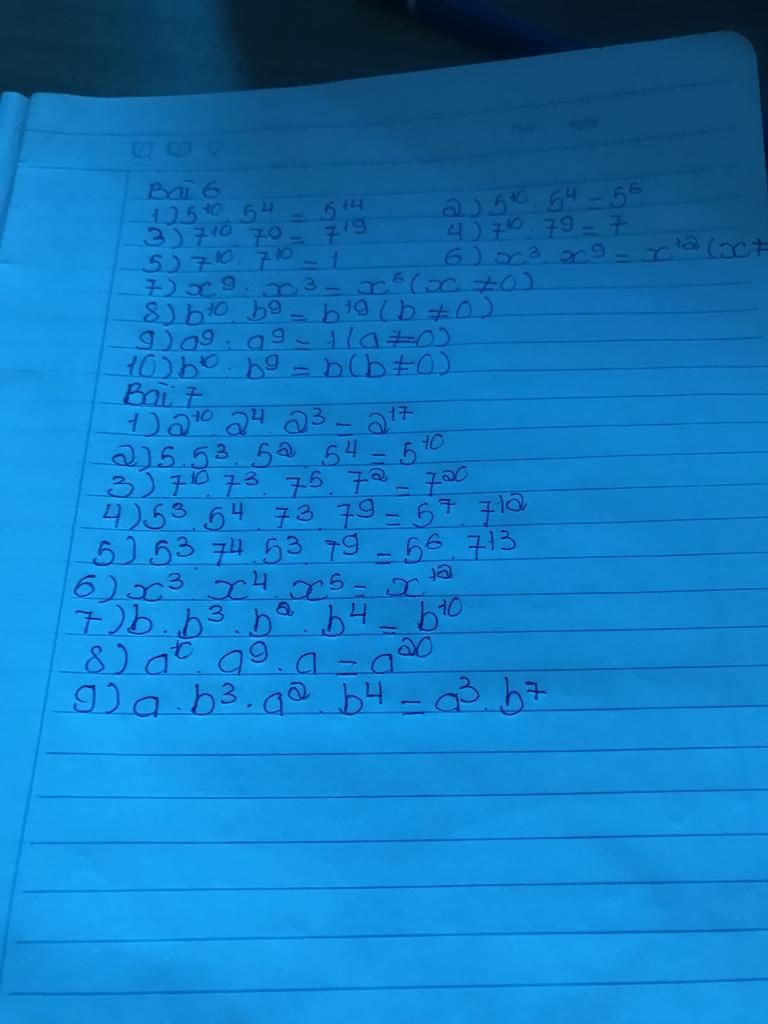 Bài 6
1) 5¹⁰. 5⁴ = 5¹⁴ 2) 5¹⁰. 5⁴ = 5⁶
3) 7¹⁰. 7⁹ = 7¹⁹ 4) 7¹⁰. 7⁹ = 7
5) 7¹⁰. 7¹⁰ = 1 6) x³. x⁹ = x¹² (x≠
7) x⁹. x³ = x⁶ (x ≠0)
8) b¹⁰. b⁹ = b¹⁹ (b ≠0)
9) a⁹. a⁹ = 1 (a≠0)
10) b¹⁰. b⁹ = b (b≠0)
Bài 7
1) 2¹⁰. 2⁴. 2³ = 2¹⁷
2) 5. 5³. 5². 5⁴ = 5¹⁰
3) 7¹⁰. 7³. 7⁵. 7² = 7²⁰
4) 5³. 5⁴. 7³. 7⁹ = 5⁷. 7¹²
5) 5³. 7⁴. 5³. 7⁹ = 5⁶. 7¹³
6) x³. x⁴. x⁵ = x¹²
7) b. b³. b². b⁴ = b¹⁰
8) a¹⁰. a⁹. a = a²⁰
9) a. b³. a². b⁴ = a³. b⁷